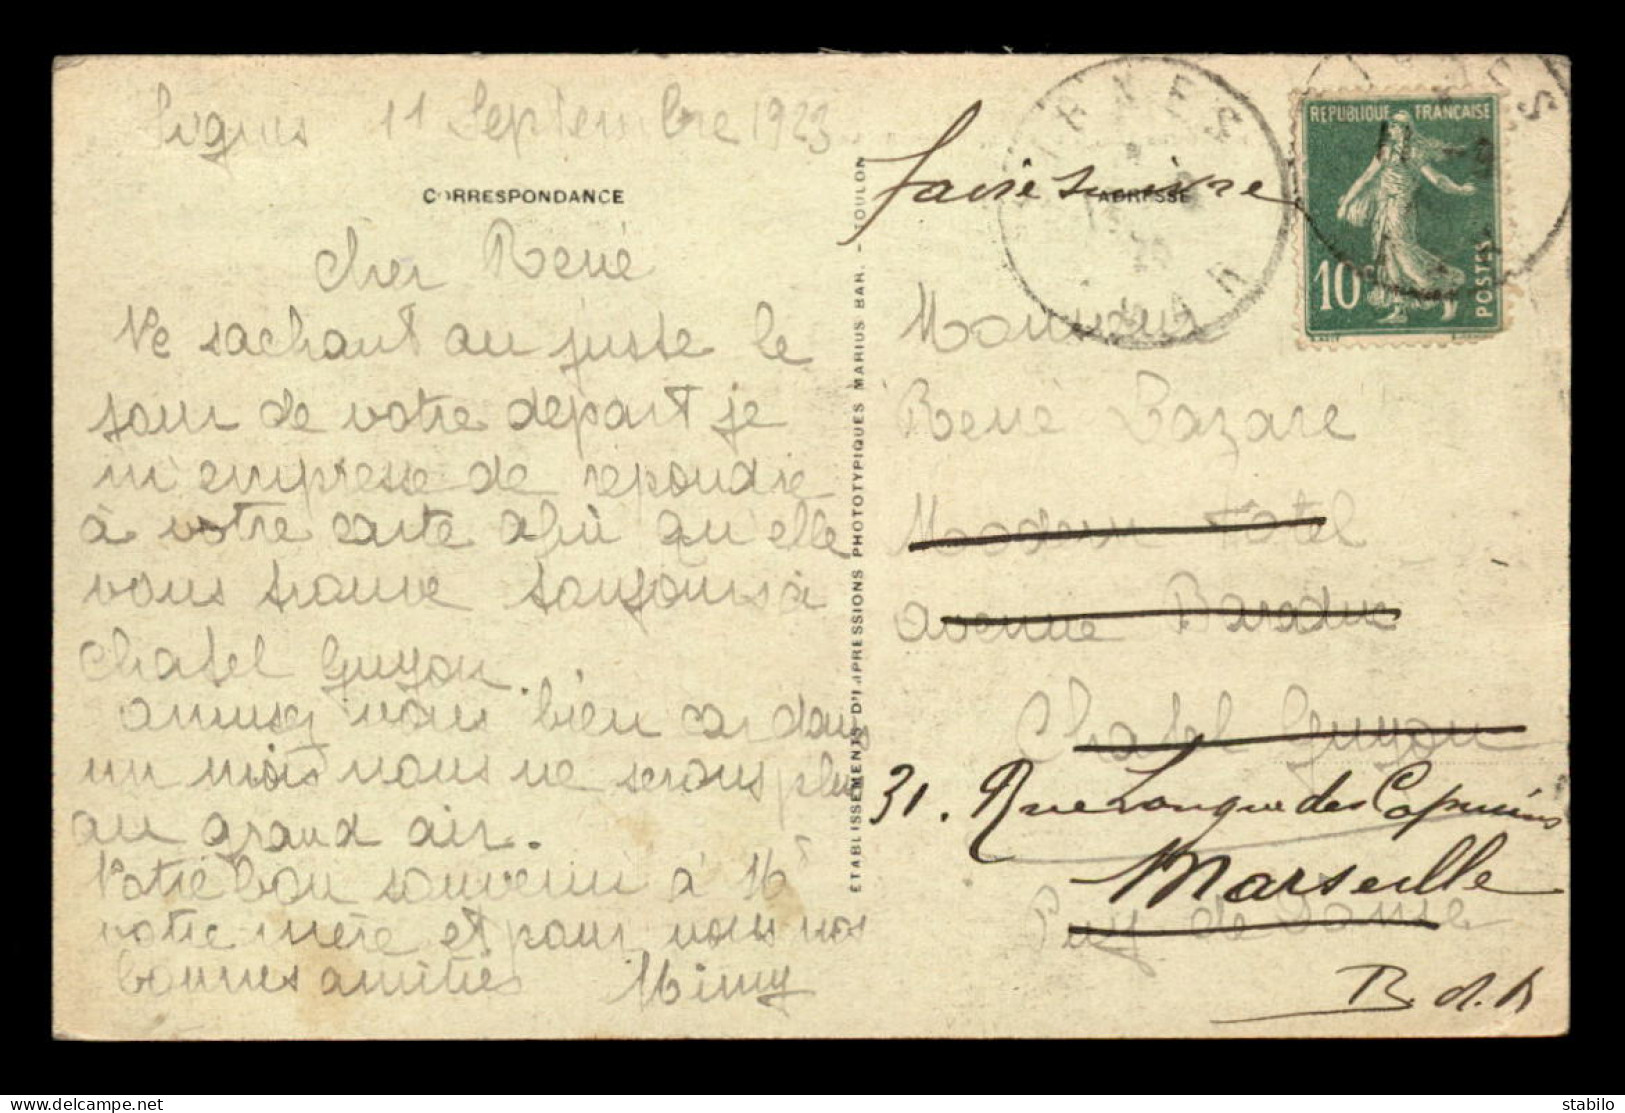 Signes 11 Septembre 1923
CORRESPONDANCE
cher René
Ne sachant au juste le
jour de votre depart je
m'empresse de repondre
à votre carte afin qu'elle
vous trouve toujours à
Chatel Guyon.
amusez vous bien car dans
un mois nous ne serons plus
au grand air.
Notre bon souvenir à Mr
votre mère et pour vous nos
bonnes amitiés Mimy
ETABLISSEMENTS D'IMPRESSIONS PHOTOTYPIQUES MARIUS BAR. - TOULON
faire suivre
ADRESSE
REPUBLIQUE FRANÇAISE
10c
POSTES
VAR
Monsieur
René Lazare
Modern Hotel
avenue Baraduc
Chatel Guyon
31. Rue Longue des Capucins
Marseille
Puy de Dome
B. d. R
stabilo | delcampe.net